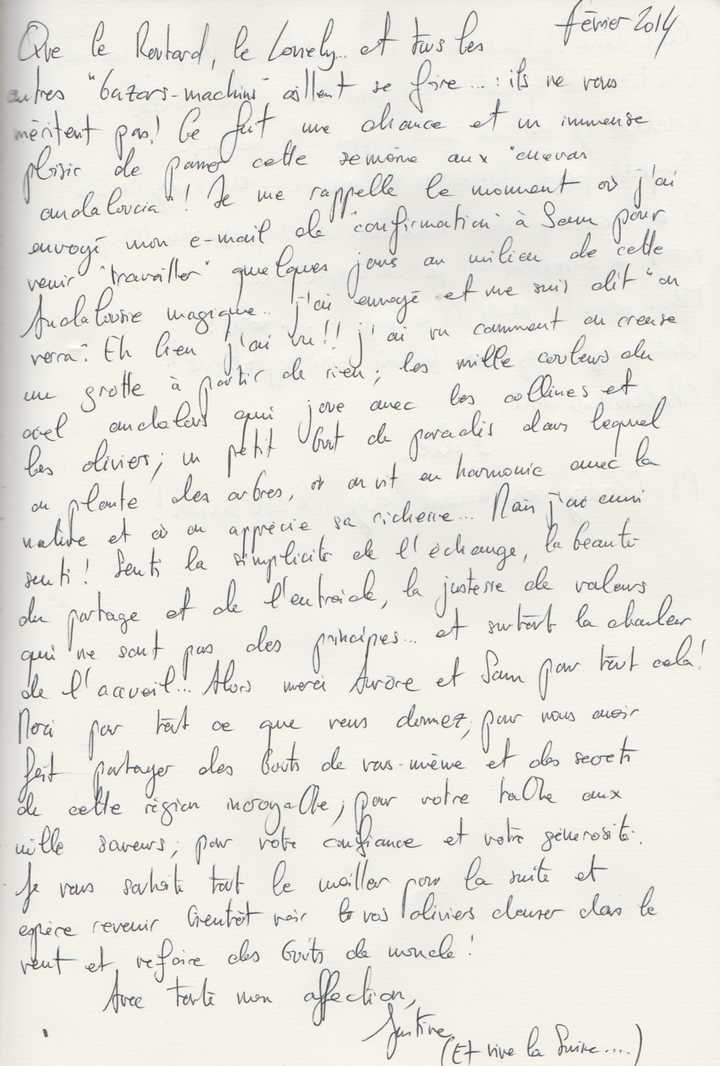 février 2014
Que le Routard, le Lonely.. et tous les
autres "bazars-machins" aillent se faire...: ils ne vous
méritent pas! Ce fut une chance et un immense
plaisir de passer cette semaine aux "cuevas
andaloucia"! Je me rappelle le moment où j'ai
envoyé mon e-mail de "confirmation" à Sam pour
venir "travailler" quelques jours au milieu de cette
Andalousie magique.. j'ai envoyé et me suis dit "on
verra". Eh bien j'ai vu!! j'ai vu comment on creuse
une grotte à partir de rien; les mille couleurs du
ciel andalous qui joue avec les collines et
les oliviers; un petit bout de paradis dans lequel
on plante des arbres, où on vit en harmonie avec la
nature et où on apprécie sa richesse... Mais j'ai aussi
senti! Senti la simplicité de l'échange, la beauté
du partage et de l'entraide, la justesse de valeurs
qui ne sont pas des principes... et surtout la chaleur
de l'accueil... Alors merci Aurore et Sam pour tout cela!
Merci pour tout ce que vous donnez, pour nous avoir
fait partager des bouts de vous-même et des secrets
de cette région incroyable; pour votre table aux
mille saveurs; pour votre confiance et votre générosité.
Je vous souhaite tout le meilleur pour la suite et
espère revenir bientôt voir vos oliviers danser dans le
vent et refaire des bouts de monde!
Avec toute mon affection,
Justine
(Et vive la Suisse....)